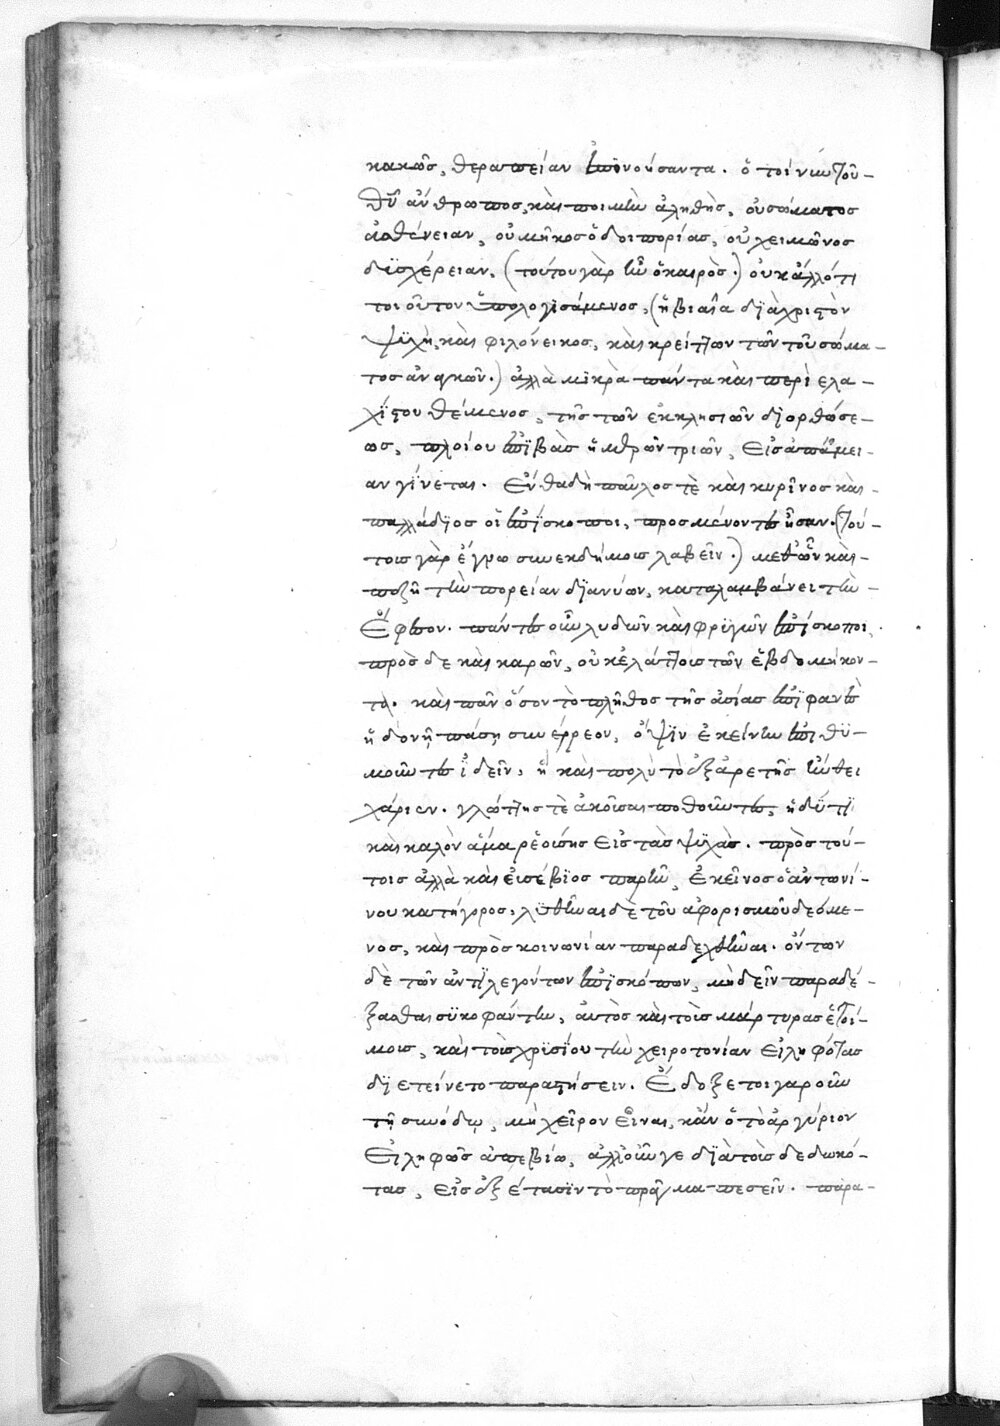 κακῶς, θεραπείαν ἐπινοήσαντα. ὁ τοίνυν τοῦ
θῦ ἄνθρωπος, καὶ ποιμὴν ἀληθὴς, οὐ σώματος
ἀσθένειαν, οὐ μῆκος ὁδοιπορίας, οὐ χειμῶνος
δυσχέρειαν, (τούτου γὰρ ἦν ὁ καιρὸς.) οὐκ ἄλλό τι
τοιοῦτον ὑπολογισάμενος, (ἡ βιαία διὰ χριστὸν
ψυχὴ, καὶ φιλόνεικος, καὶ κρείττων τῶν τοῦ σώμα-
τος ἀναγκῶν.) ἀλλὰ μικρὰ πάντα καὶ περὶ ἐλα-
χίστου θέμενος, τῆς τῶν ἐκκλησιῶν διορθώσε-
ως, πλοίου ἐπιβὰς ἡμερῶν τριῶν, εἰς ἀπάμει-
αν γίνεται. ἔνθα δὴ παῦλος τὲ καὶ κυρῖνος καὶ
παλλάδιος οἱ ἐπίσκοποι, προσμένοντες ἦσαν. (τού-
τοις γὰρ ἔγνω συνεκδήμοις λαβεῖν.) μεθ' ὧν καὶ
πεζῇ τὴν πορείαν διανύων, καταλαμβάνει τὴν
Ἔφεσον. πάντες οὖν λυδῶν καὶ φρυγῶν ἐπίσκοποι,
πρὸς δὲ καὶ καρῶν, οὐκ ἐλάττοις τῶν ἑβδομήκον-
τα. καὶ πᾶν ὅσον τὸ πλῆθος τῆς ἀσίας ἐπιφανὲς
ἡδονῇ πάσῃ συνέρρεον, ὄψιν ἐκείνην ἐπιθυ-
μοῦντες ἰδεῖν, ᾗ καὶ πολὺ τὸ ἐξ ἀρετῆς ἐπήνθει
χάριεν. γλώττης τὲ ἀκοῦσαι ποθοῦντες, ἡδύ τι
καὶ καλὸν ἅμα ῥεούσης εἰς τὰς ψυχάς. πρὸς τού-
τοις ἀλλὰ καὶ εὐσέβιος παρῆν, ἐκεῖνος ὁ ἀντωνί-
νου κατήγορος, λυθῆναι δὲ τοῦ ἀφορισμοῦ δεόμε-
νος, καὶ πρὸς κοινωνίαν παραδεχθῆναι. ὄντων
δὲ τῶν ἀντιλεγόντων ἐπισκόπων, μὴ δεῖν παραδέ-
ξασθαι συκοφάντην, αὐτὸς καὶ τοὺς μάρτυρας ἑτοί-
μοις, καὶ τοὺς χρυσίου τὴν χειροτονίαν εἰληφότας
διετείνετο παραστήσειν. Ἔδοξε τοιγαροῦν
τῇ συνόδῳ, μὴ χεῖρον εἶναι, κἂν ὁ τὸ ἀργύριον
εἰληφὼς ἀπεβίω, ἀλλ' οὖν γε διὰ τοὺς δεδωκό-
τας, εἰς ἐξέτασιν τὸ πρᾶγμα πεσεῖν. παρα-